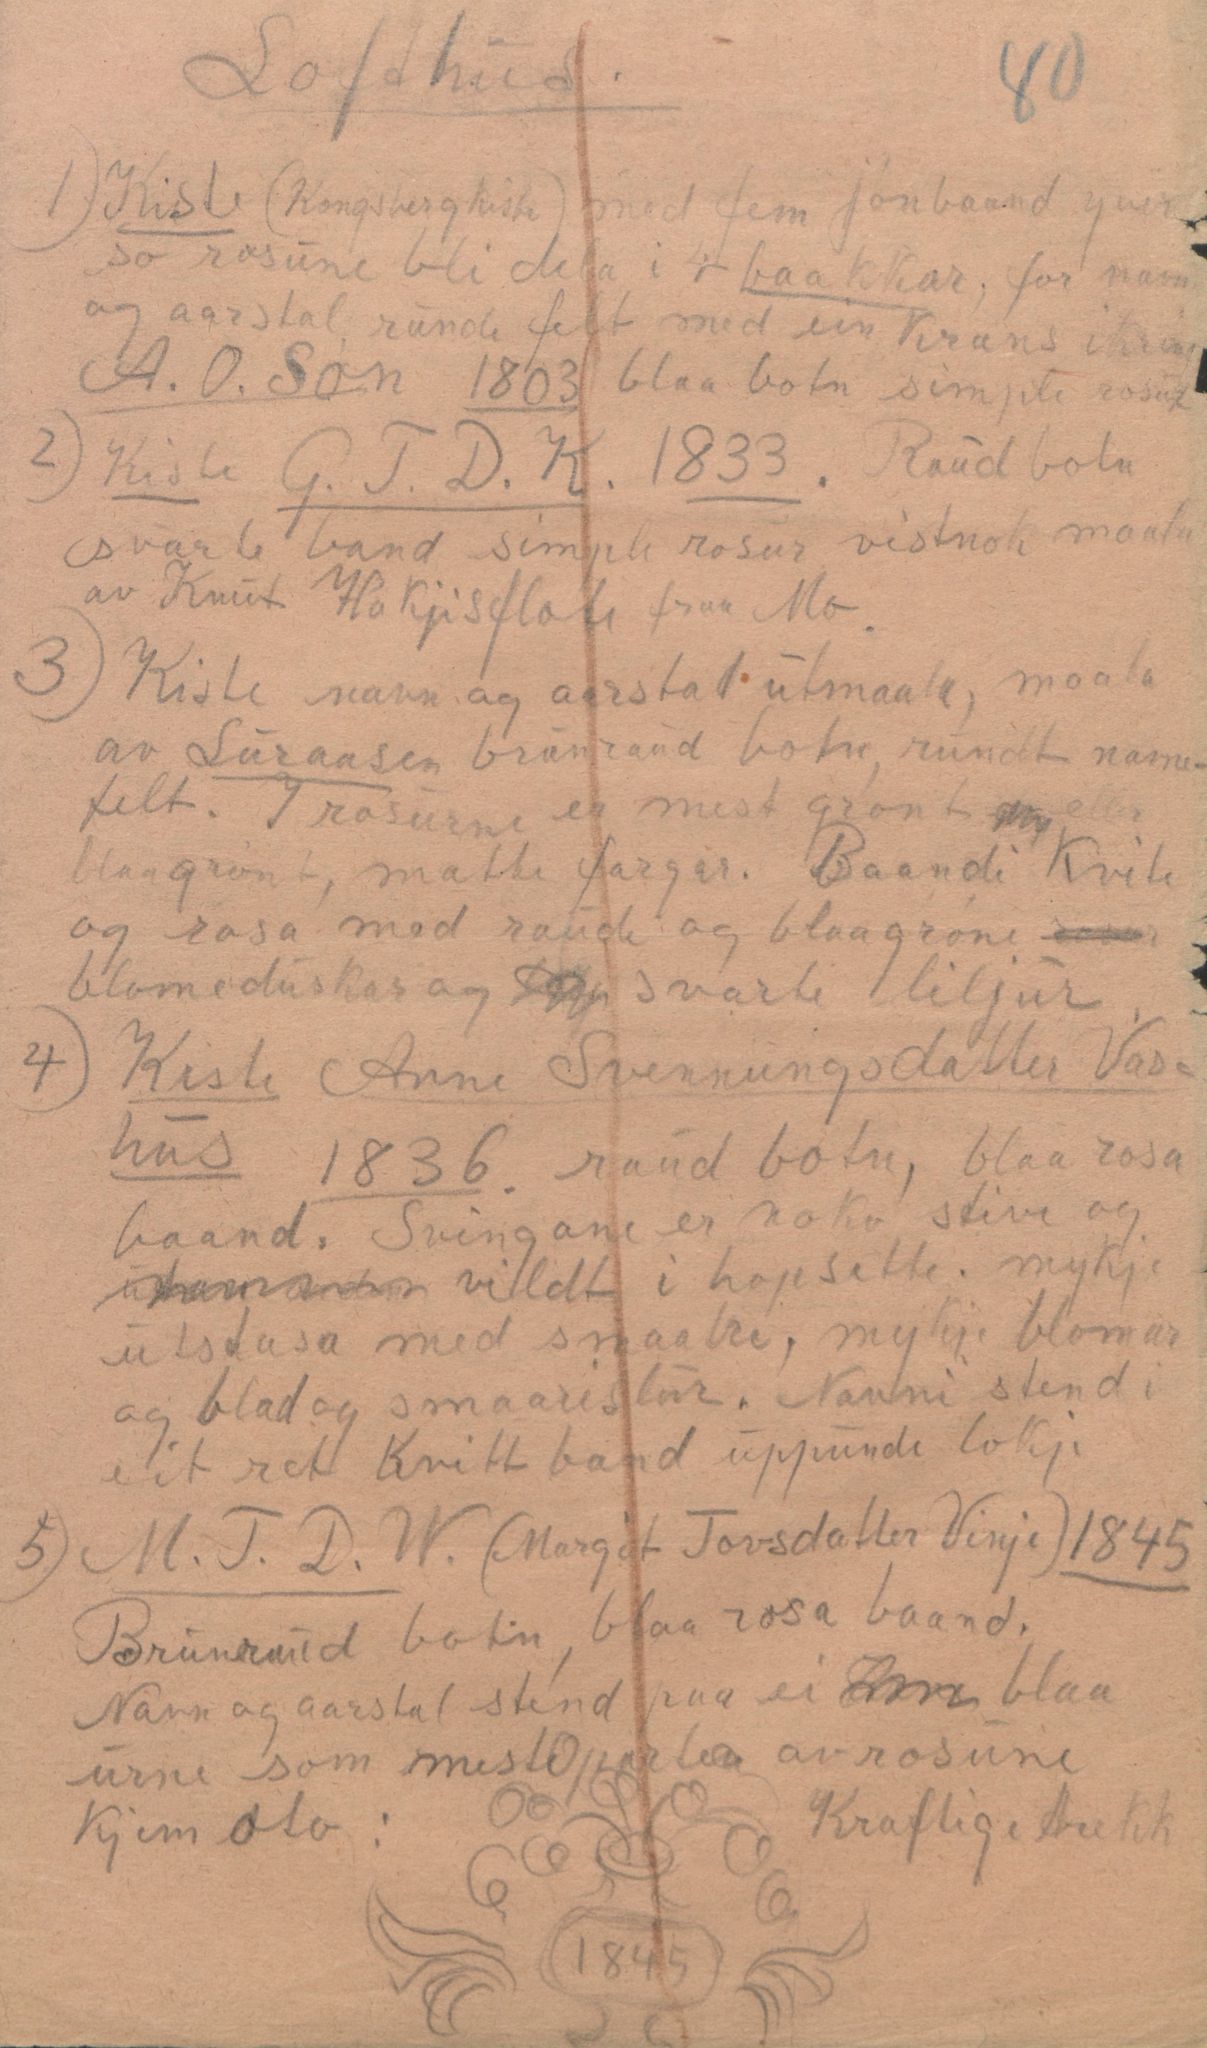 Lofthus.
40
1) Kiste (Kongsbergkiste) med fem jønbaand yver
so rosune bli dela i 4 baakkar, for navn
og aarstal runde felt med ein krans ikring
A. O. Søn 1803 blaa botn simple rosur
2) Kiste G. T. D. K. 1833. Raud botn
svarte band simple rosur vistnok maala
av Knut Hakjisflote fraa Mo.
3) Kiste navn og aarstal utmaala, maala
av Luraasen brunraud botn, rundt name-
felt. I rosurne er mest grønt eller
blaagrønt, matte fargar. Baandi Kvite
og rosa med raude og blaagrøne
blomeduskar og svarte liljur.
4) Kiste Anne Svennungsdatter Vaa-
hus 1836. raud botn, blaa rosa
baand. Svingane er noko stive og
villdt i hopsette. mykje
utstasa med smaatri, mykje blomar
og blad og smaaristur. Navni stend i
eit ret Kvitt band uppunde lokje
5) M. T. D. W. (Margit Tovsdatter Vinje) 1845
Brunraud botn, blaa rosa baand.
Navn og aarstal stend paa ei blaa
urne som mestoparten av rosune
Kjem oto: Kraftige trekk
1845